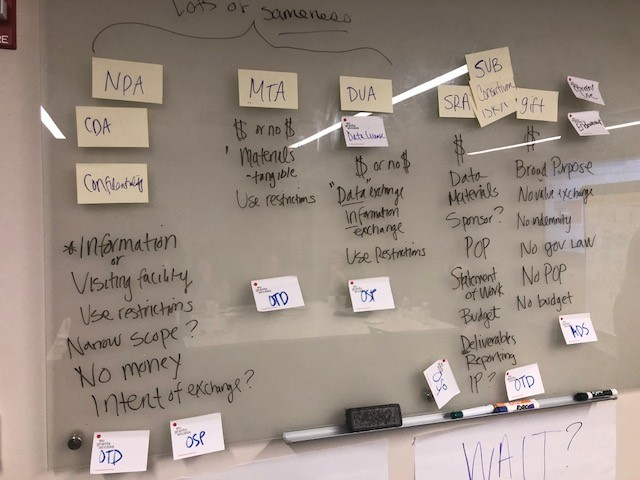 Lots of sameness
NDA
CDA
Confidentiality
*Information
or
Visiting facility
Use restrictions
Narrow scope?
No money
Intent of exchange?
OTD
OSP
MTA
$ or no $
Materials
-tangible
Use restrictions
OTD
DUA
Data License
$ or no $
"Data" exchange
Information
exchange
Use Restrictions
OSP
SRA
SUB
Consortium
$
Data
Materials
Sponsor?
POP
Statement
of Work
Budget
Deliverables
Reporting
IP?
OTD
gift
$
Broad Purpose
No value exchange
No indemnity
No gov law
No POP
No budget
ADS
WAIT?
EXPO